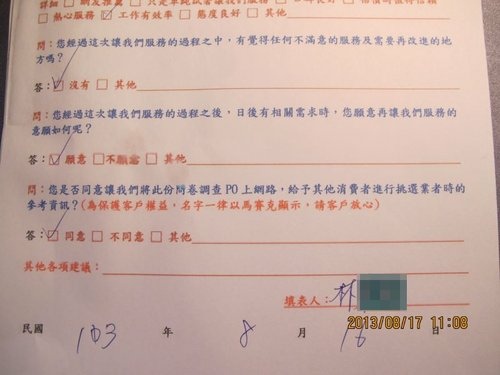 詳細 □ 網友推薦 □ 只是單純試著讓我們服務 □
□ 熱心服務 ☑ 工作有效率 □ 態度良好 □ 其他
問：您經過這次讓我們服務的過程之中，有覺得任何不滿意的服務及需要再改進的地
方嗎？
答：☑ 沒有 □ 其他
問：您經過這次讓我們服務的過程之後，日後有相關需求時，您願意再讓我們服務的
意願如何呢？
答：☑ 願意 □不願意 □ 其他
問：您是否同意讓我們將此份問卷調查 PO 上網路，給予其他消費者進行挑選業者時的
參考資訊？(為保護客戶權益，名字一律以馬賽克顯示，請客戶放心)
答：☑ 同意 □ 不同意 □ 其他
其他各項建議：
填表人：林
2013/08/17 11:08
民國 103 年 8 月 16 日